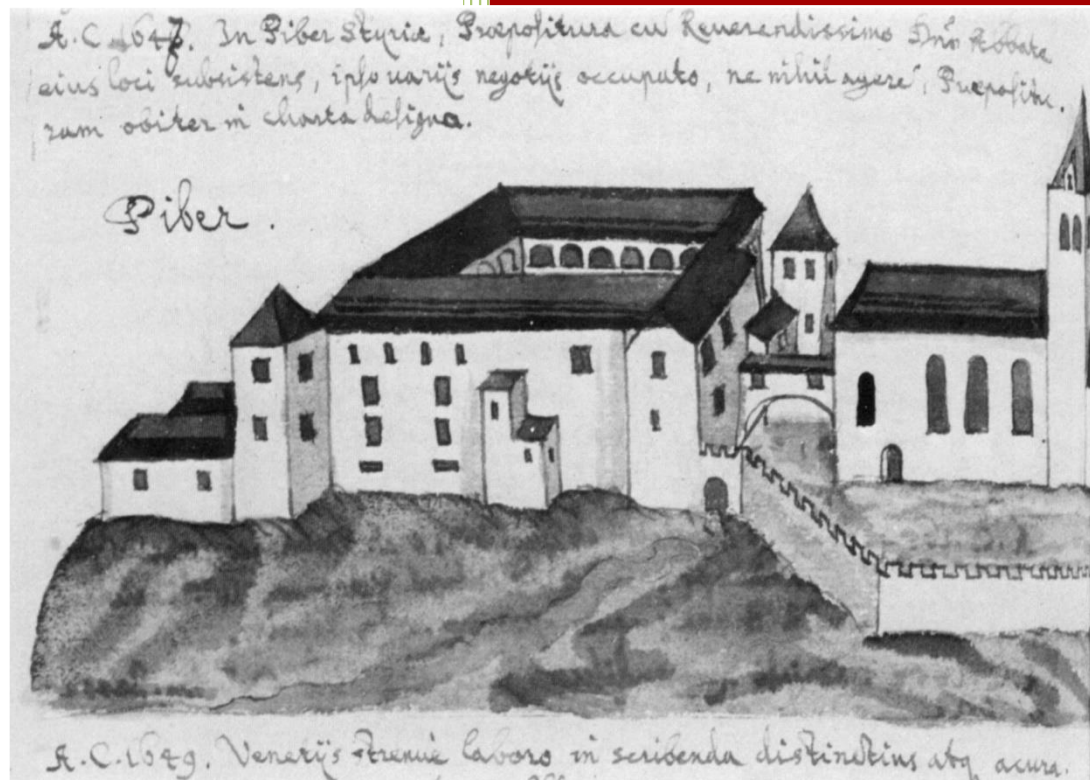 A.C. 1647. In Piber Styriæ, Præpositura cu Reuerendissimo Dnō Abbate
eius loci subsistens, ipso uarijs negotijs occupato, ne nihil agere, Præposiu-
ram obiter in charta designa.
Piber.
A.C. 1649. Venetijs strenuè laboro in scribenda distinctius atq acura.